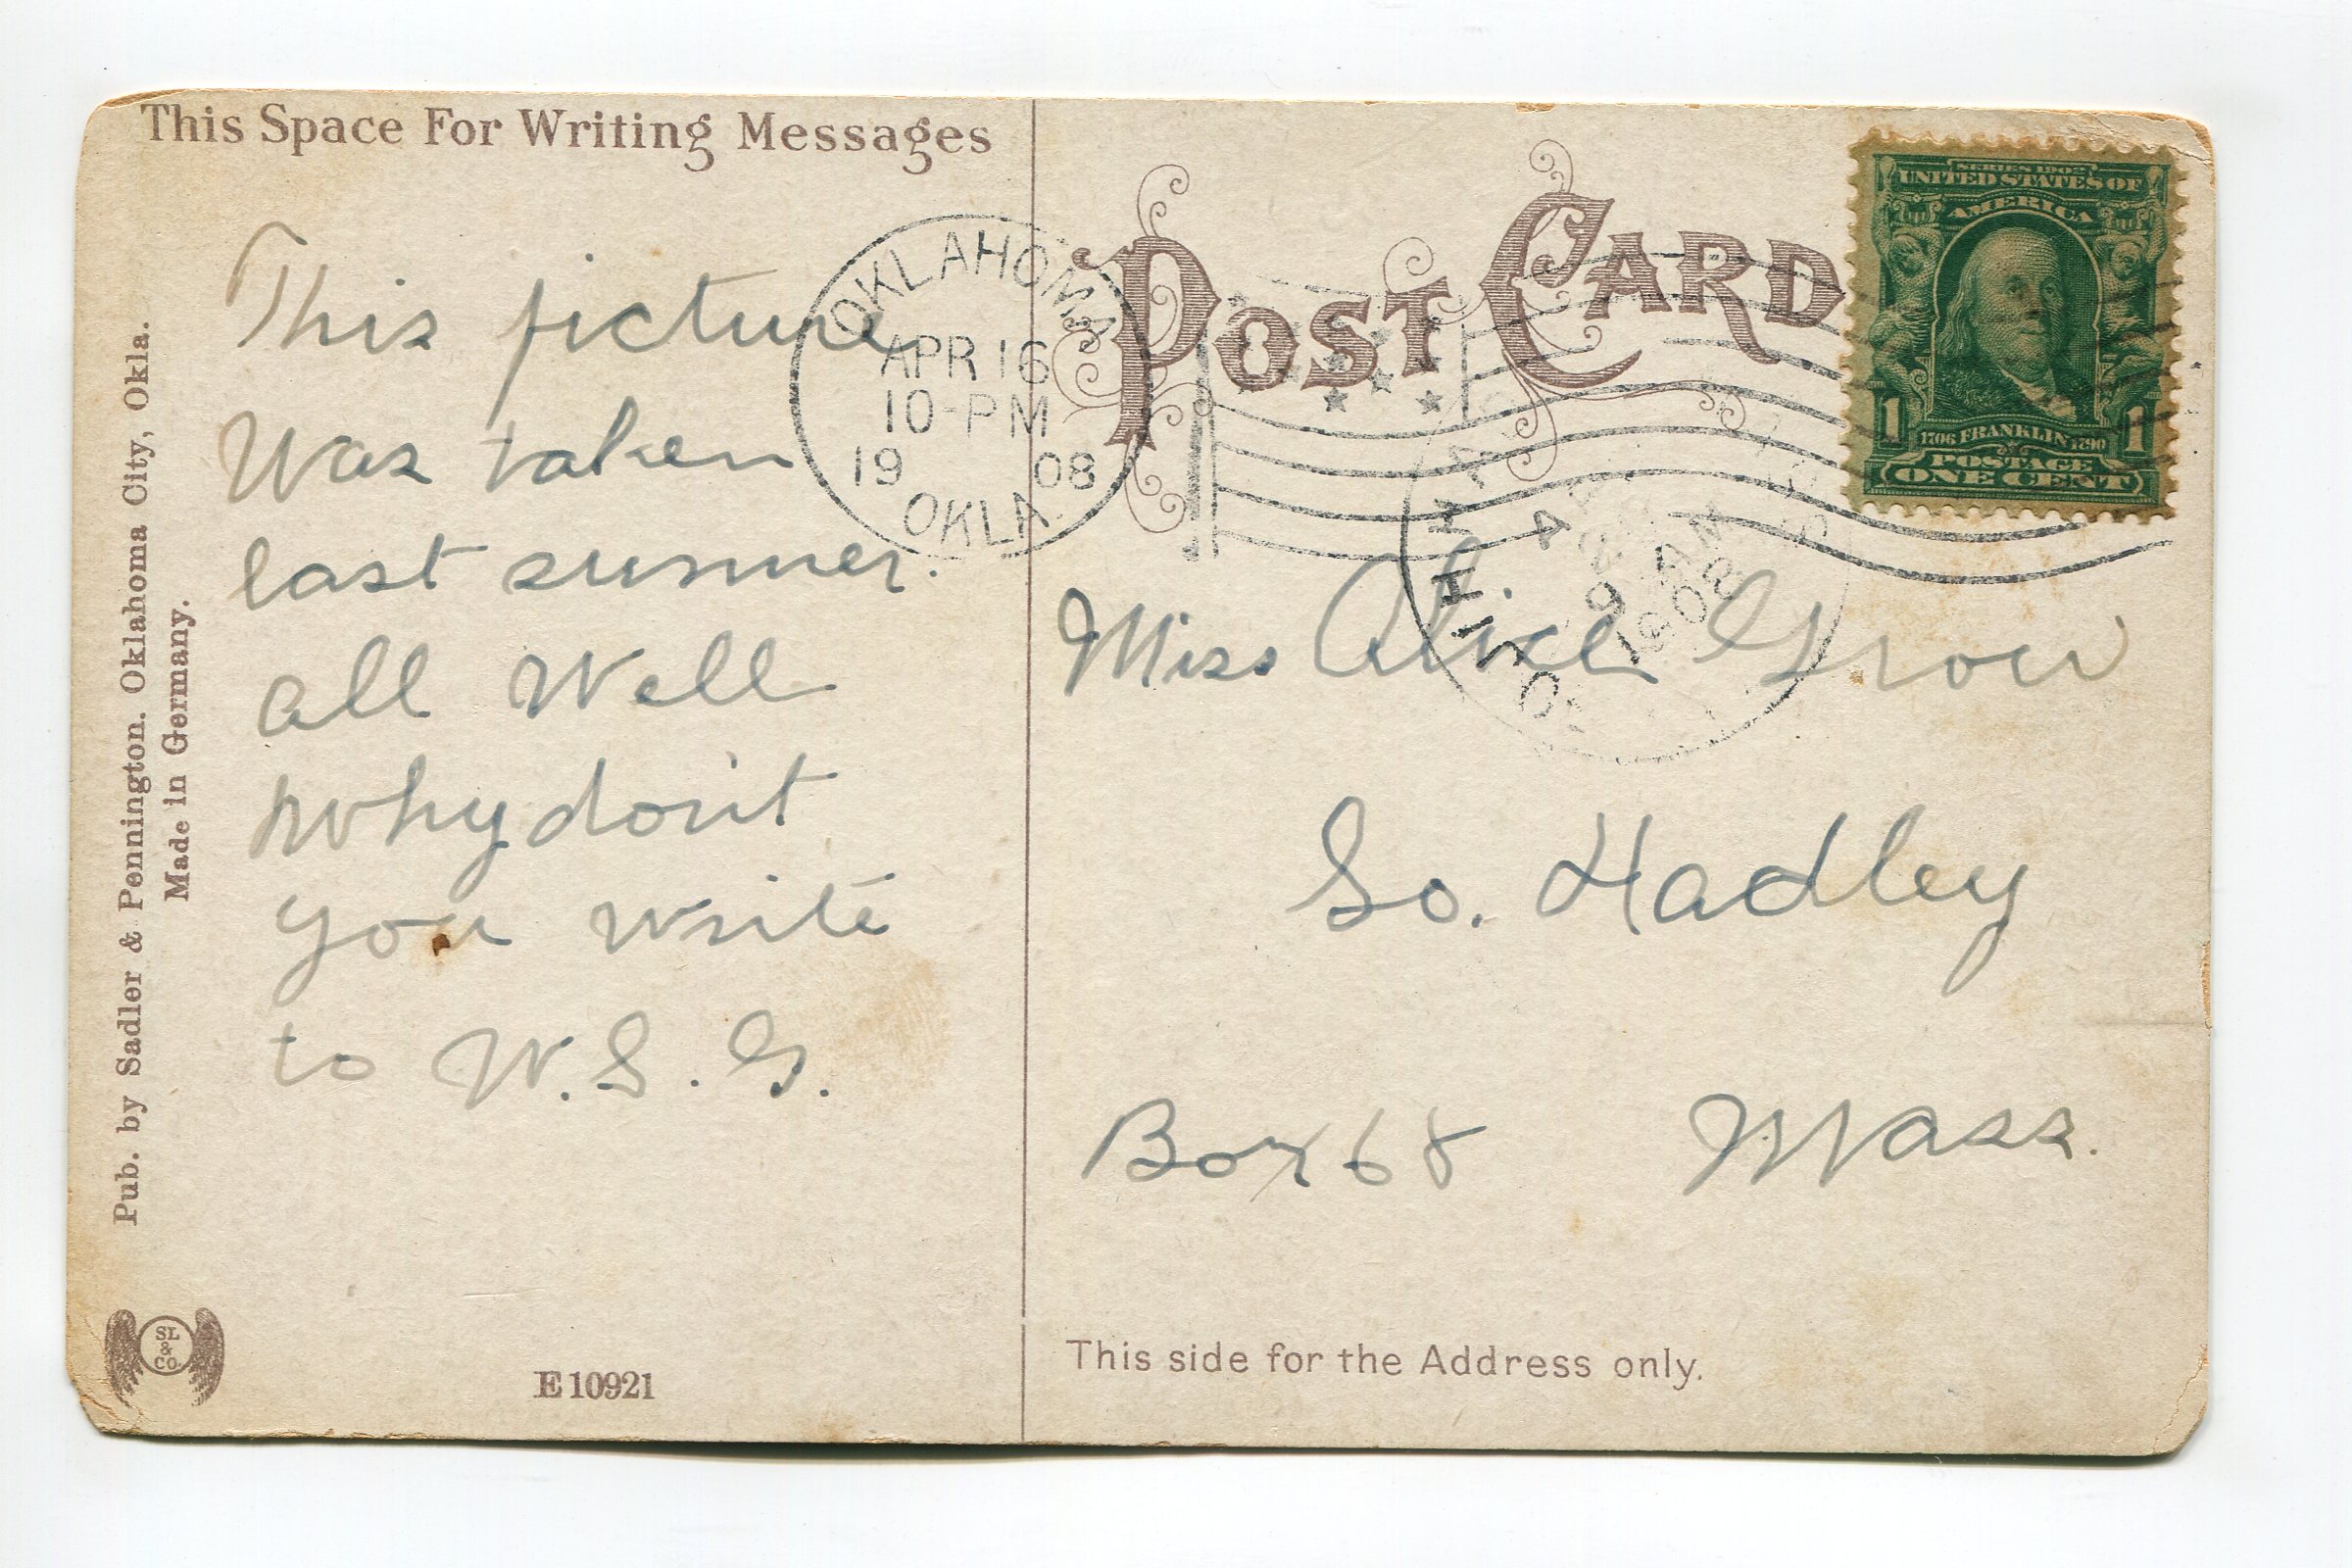 This Space For Writing Messages
This picture
Was taken
last summer.
all Well
Why don't
you write
to W.S.G.
Pub. by Sadler & Pennington. Oklahoma City, Okla.
Made in Germany.
SL
&
CO.
E 10921
OKLAHOMA
APR 16
10-PM
19 08
OKLA.
POST CARD
SERIES 1902
UNITED STATES OF
AMERICA
1 1
1706 FRANKLIN 1790
POSTAGE
ONE CENT
AM
1908
Miss Alice Grow
So. Hadley
Box 68 Mass.
This side for the Address only.